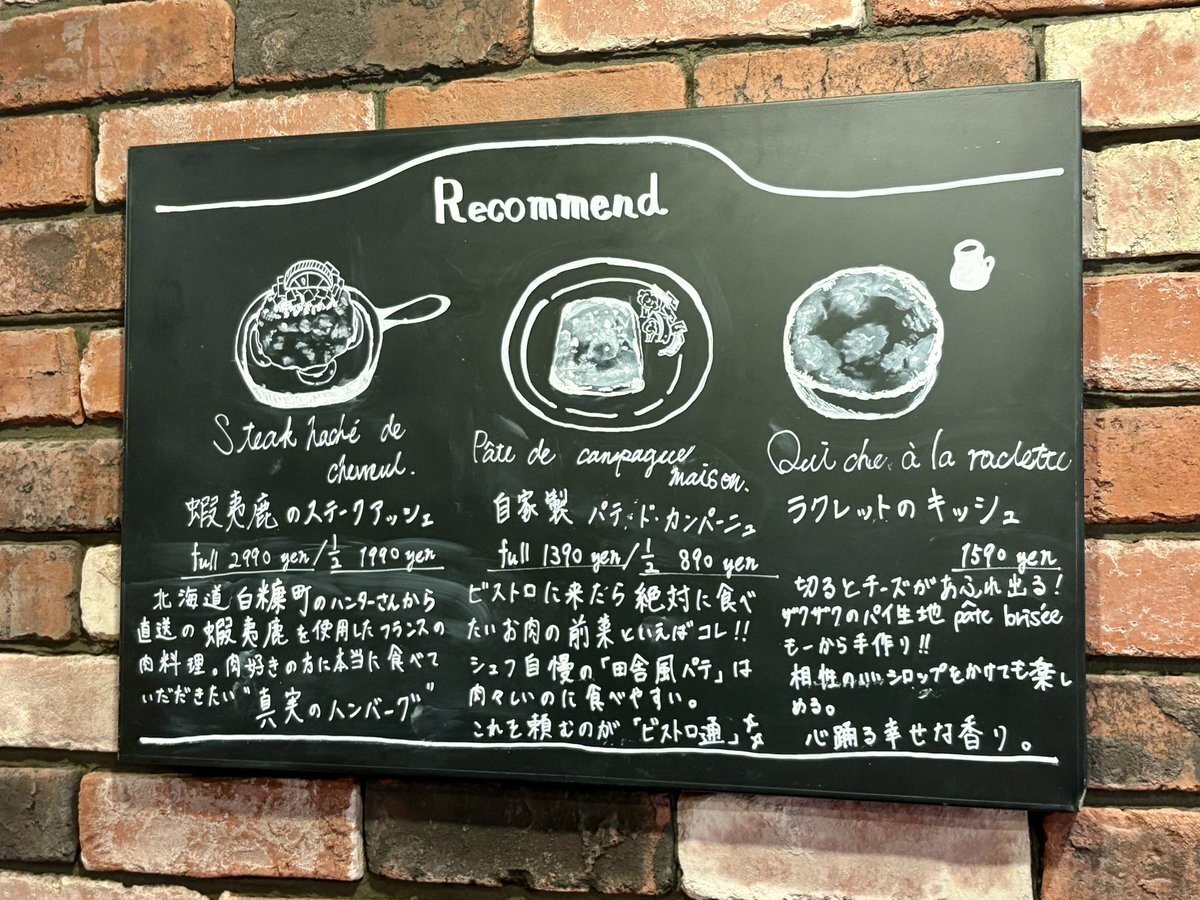 Recommend
Steak haché de
chevreul.
蝦夷鹿のステークアッシェ
full 2990 yen/½ 1990 yen
北海道白糠町のハンターさんから
直送の蝦夷鹿を使用したフランスの
肉料理。肉好きの方に本当に食べて
いただきたい"真実のハンバーグ"
Pâte de campagne
maison.
自家製 パテ・ド・カンパーニュ
full 1390 yen/½ 890 yen
ビストロに来たら絶対に食べ
たいお肉の前菜といえばコレ!!
シェフ自慢の「田舎風パテ」は
肉々しいのに食べやすい。
これを頼むのが「ビストロ通」
Quiche à la raclette
ラクレットのキッシュ
1590 yen
切るとチーズがあふれ出る!
ザクザクのパイ生地 pâte brisée
も一から手作り!!
相性のいいシロップをかけても楽し
める。
心踊る幸せな香り。